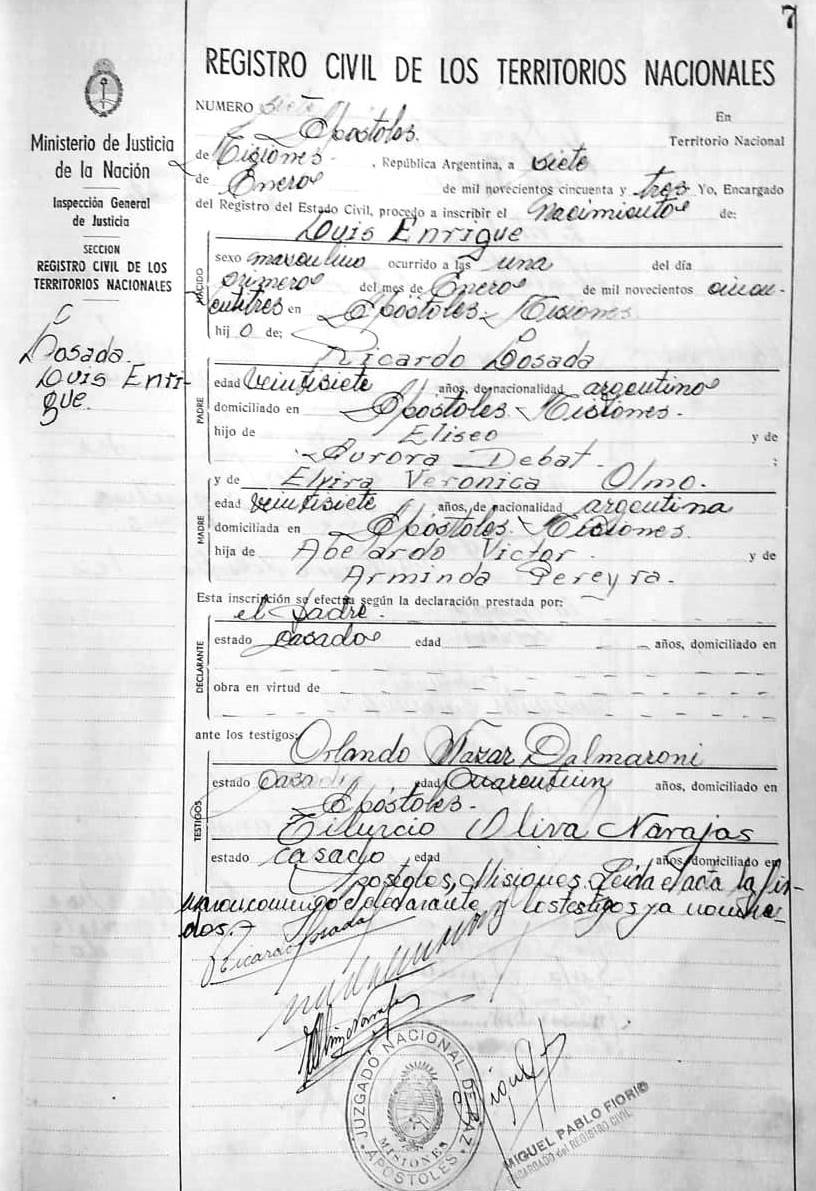 7
REGISTRO CIVIL DE LOS TERRITORIOS NACIONALES
Ministerio de Justicia
de la Nación
Inspección General
de Justicia
SECCION
REGISTRO CIVIL DE LOS
TERRITORIOS NACIONALES
Losada
Luis Enri-
que.
NUMERO siete En
Apóstoles. Territorio Nacional
de Misiones. , República Argentina, a siete
de Enero de mil novecientos cincuenta y tres Yo, Encargado
del Registro del Estado Civil, procedo a inscribir el Nacimiento de:
Luis Enrique
NACIDO
sexo masculino ocurrido a las una del día
primero del mes de Enero de mil novecientos cincu-
entitres en Apóstoles. Misiones
hijo de:
Ricardo Losada
PADRE
edad veintisiete años, de nacionalidad argentino
domiciliado en Apóstoles. Misiones.
hijo de Eliseo y de
Aurora Debat. ;
MADRE
y de Elvira Veronica Olmo.
edad veintisiete años, de nacionalidad argentina
domiciliada en Apóstoles. Misiones.
hija de Abelardo Victor. y de
Arminda Pereyra.
Esta inscripción se efectúa según la declaración prestada por:
el padre.
DECLARANTE
estado casado edad años, domiciliado en
obra en virtud de
ante los testigos:
Orlando Nazar Dalmaroni
TESTIGOS
estado casado edad cuarentiun años, domiciliado en
Apóstoles.
Tiburcio Oliva Narajas
estado casado edad años, domiciliado en
Apostoles, Misiones. Leida el acta la fir-
maron conmigo el declarante y los testigos ya nombra-
dos.
Ricardo Losada
JUZGADO NACIONAL DE PAZ
MISIONES
APOSTOLES
MIGUEL PABLO FIORIO
ENCARGADO del REGISTRO CIVIL